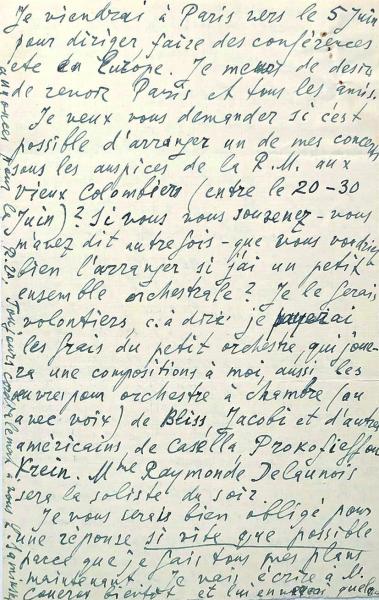 Je viendrai à Paris vers le 5 Juin
pour diriger, faire des conférences
etc en Europe. Je meurs de desir
de revoir Paris et tous les amis.
Je veux vous demander si c'est
possible d'arranger un de mes concerts
sous les auspices de la R.M. aux
vieux Colombiers (entre le 20-30
Juin)? Si vous vous souvenez - vous
m'avez dit autrefois - que vous voudriez
bien l'arranger si j'ai un petit
ensemble orchestrale? Je le ferais
volontiers, c.à dire je payerai
les frais du petit orchestre, qui joue-
ra une compositions à moi, aussi les
œuvres pour orchestre à chambre (ou
avec voix) de Bliss, Jacobi et d'autres
américains, de Casella, Prokofieff ou
Krein. Mme Raymonde Delaunois
sera la soliste du soir.
Je vous serais bien obligé pour
une réponse si vite que possible
parce que je fais tous mes plans
maintenant. Je vais écrire à M.
Coeuroy bientôt et lui quelques
annonces pour la S. R. 20. Toujours cordialement à vous L. Saminsky